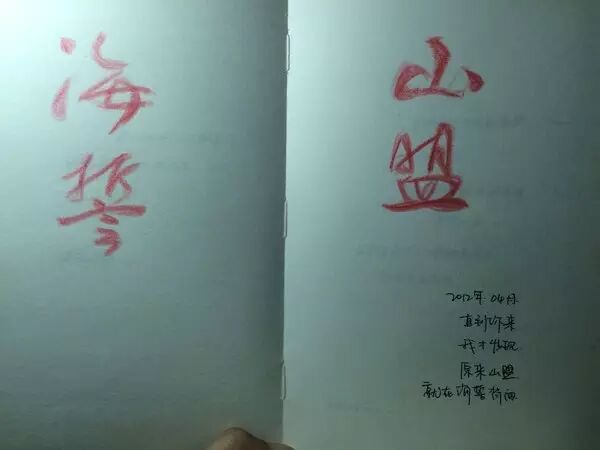 海誓
山盟
2012年 04月
直到你来
我才发现
原来山盟
就在海誓